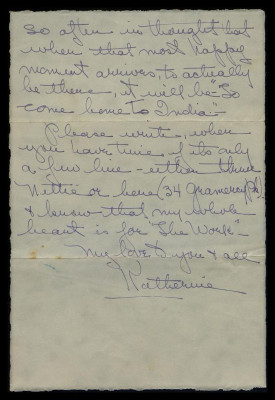 so often in thought but
when that most happy
moment arrives, to actually
be there, it will be "So
come home to India".
Please write, when
you have time if its only
a few line - either thru
Nettie or here (34 Gramercy Pk)
& know that my whole
heart is for "The Work"
My love to you & all
Katherine